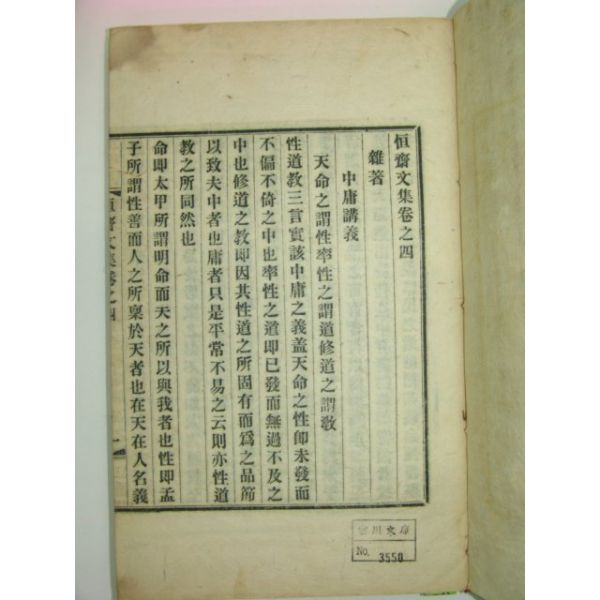 恒齋文集卷之四
雜著
中庸講義
天命之謂性率性之謂道修道之謂敎
性道敎三言實該中庸之義盖天命之性卽未發而
不偏不倚之中也率性之道卽已發而無過不及之
中也修道之敎卽因其性道之所固有而爲之品節
以致夫中者也庸者只是平常不易之云則亦性道
敎之所同然也
命卽太甲所謂明命而天之所以與我者也性卽孟
子所謂性善而人之所稟於天者也在天在人名義
恒齋文集卷之四
一
川文庫
No. 3550